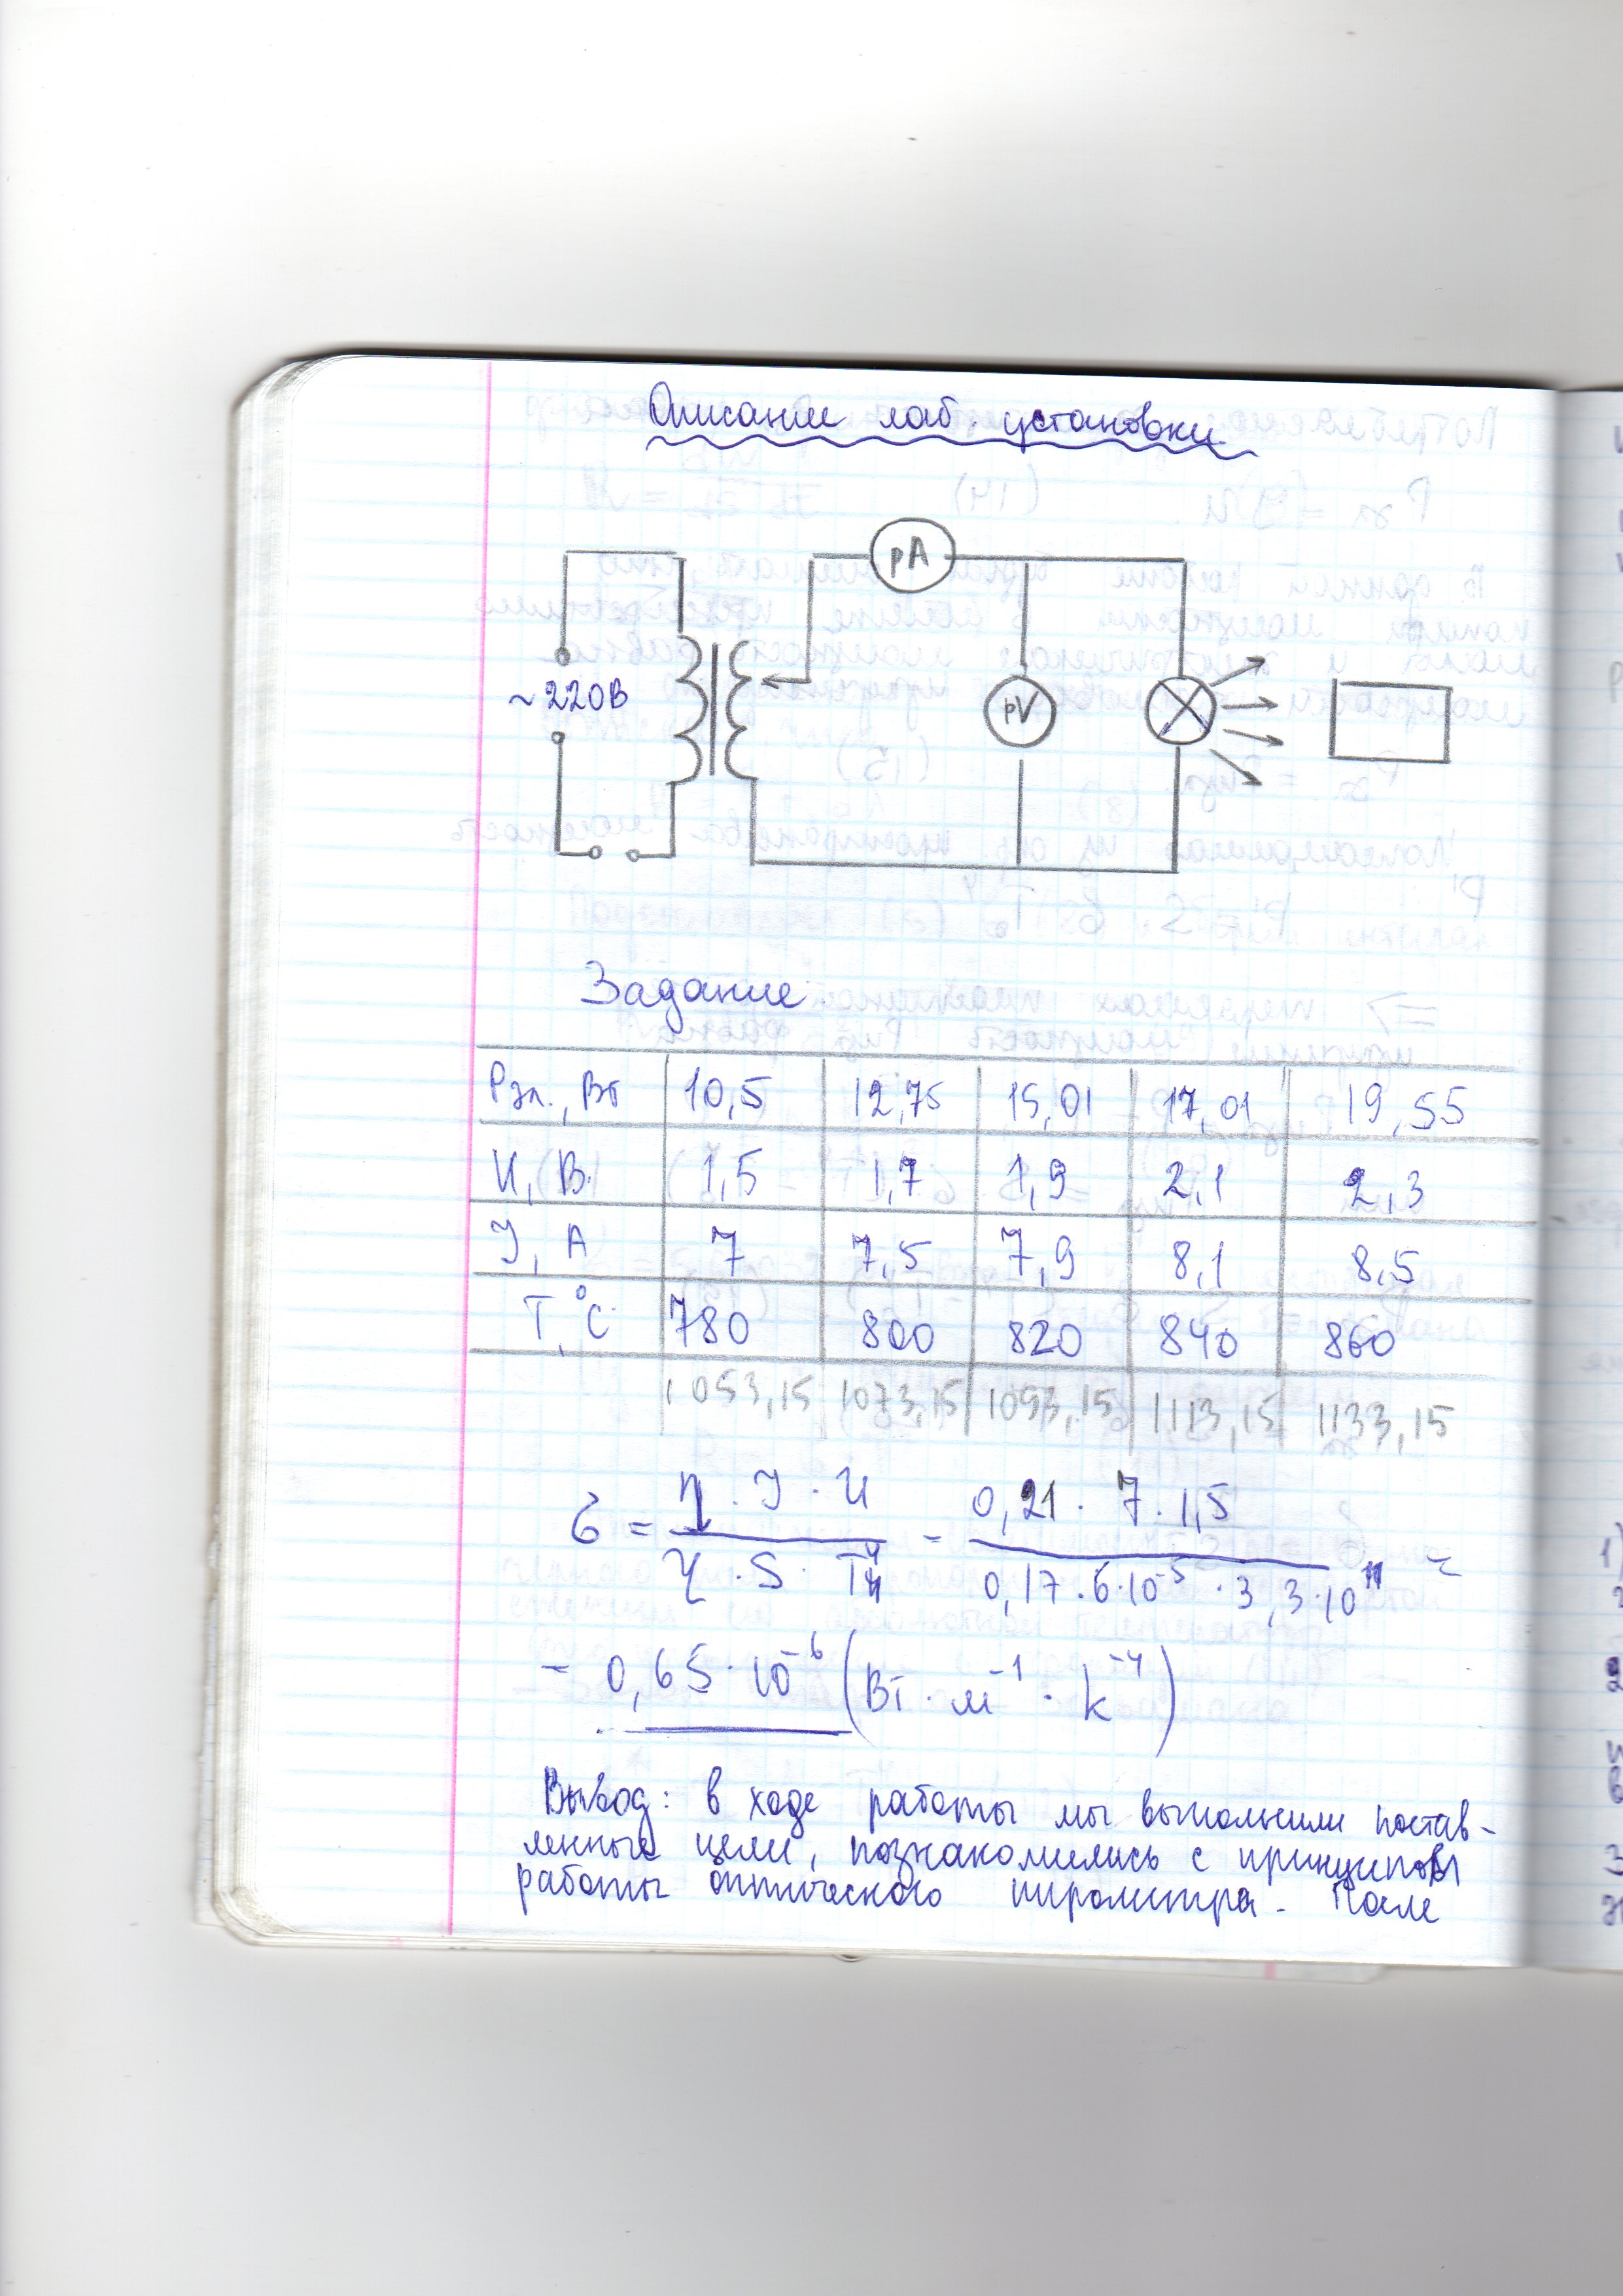 Описание лаб. установки
pA
~220В
pV
Задание
Pэл., Вт 10,5 12,75 15,01 17,01 19,55
U, В. 1,5 1,7 1,9 2,1 2,3
J, А 7 7,5 7,9 8,1 8,5
T, °C 780 800 820 840 860
1053,15 1073,15 1093,15 1113,15 1133,15
σ = η · J · U / · S · T⁴ = 0,21 · 7 · 1,5 / 0,17 · 6 · 10⁻⁵ · 3,3 · 10¹¹ =
= 0,65 · 10⁻⁶ (Вт · м⁻¹ · k⁻⁴)
Вывод: в ходе работы мы выполнили постав-
ленные цели, познакомились с принципом
работы оптического пирометра. После